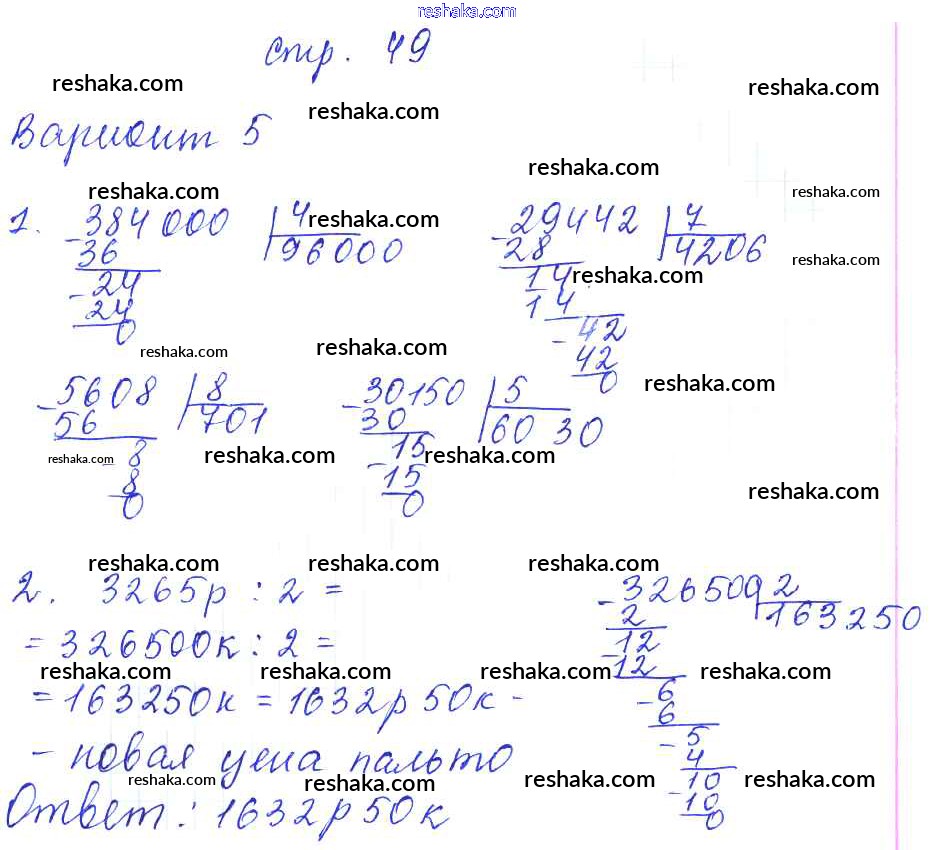 reshaka.com
стр. 49
reshaka.com reshaka.com reshaka.com
Вариант 5
reshaka.com reshaka.com reshaka.com
1. - 384 000 | 4 reshaka.com - 29442 | 7
36 96000 28 4206 reshaka.com
- 24 14 reshaka.com
24 14
0 - 42
reshaka.com reshaka.com 42
0 reshaka.com
- 5608 | 8 - 30150 | 5
56 701 30 60 30
reshaka.com 8 reshaka.com 15 reshaka.com
8 - 15
0 0 reshaka.com
reshaka.com reshaka.com reshaka.com
2. 3265р : 2 = - 326500 | 2
= 326500к : 2 = 2 163250
- 12
reshaka.com reshaka.com reshaka.com 12 reshaka.com
= 163250к = 1632р 50к - - 6
6
- новая цена пальто - 5
4
reshaka.com reshaka.com reshaka.com 10 reshaka.com
Ответ: 1632р 50к - 10
0